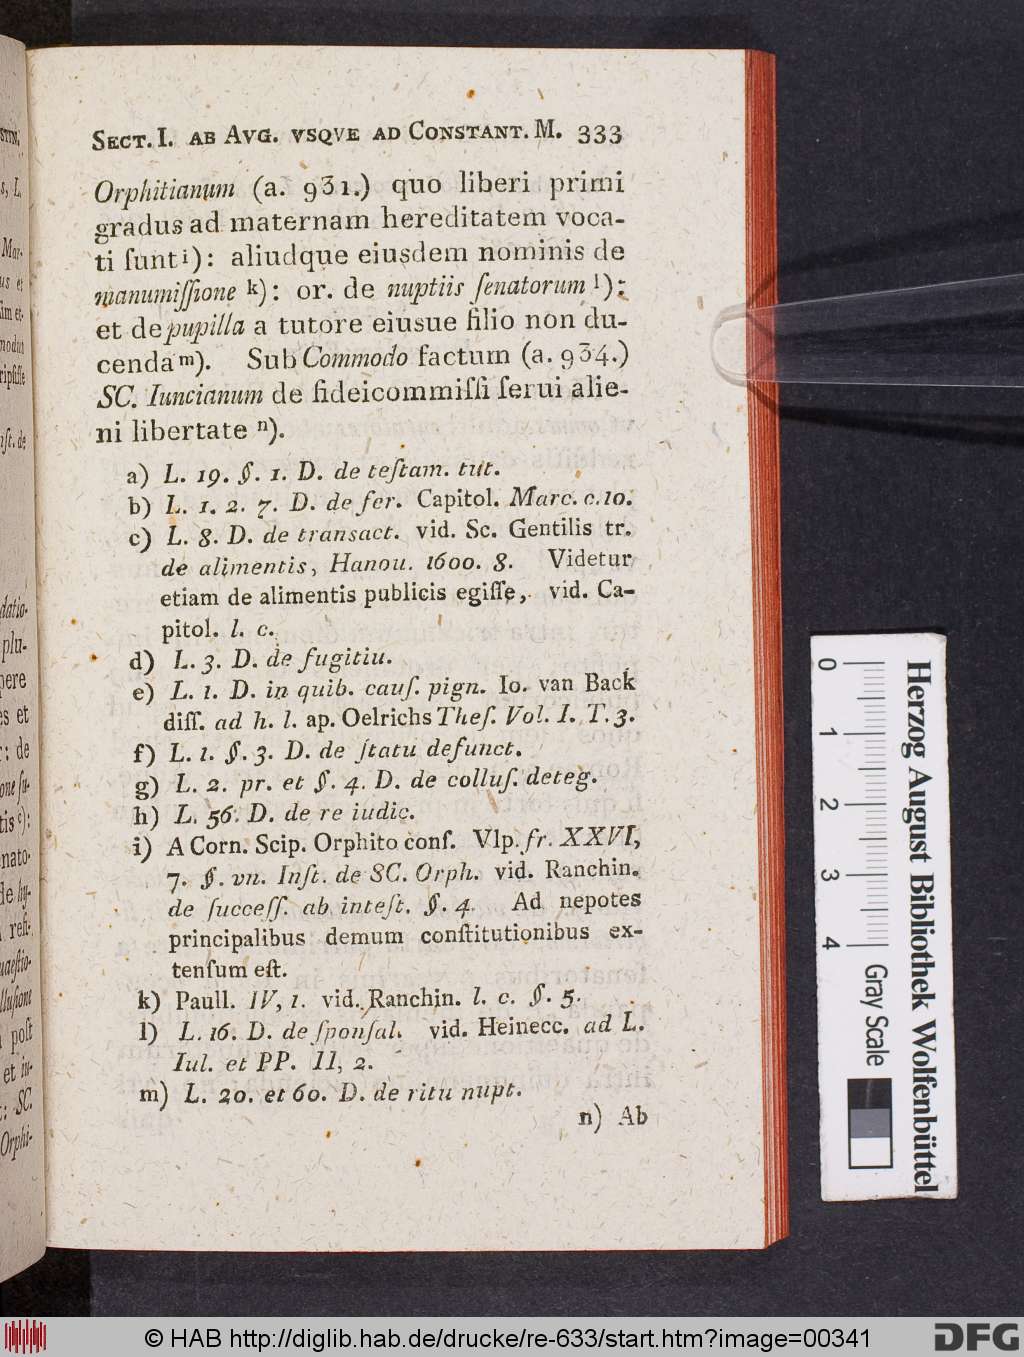 SECT. I. AB AVG. VSQVE AD CONSTANT. M. 333
Orphitianum (a. 931.) quo liberi primi
gradus ad maternam hereditatem voca-
ti ſunt i): aliudque eiusdem nominis de
manumiſſione k): or. de nuptiis ſenatorum l):
et de pupilla a tutore eiusue filio non du-
cenda m). Sub Commodo factum (a. 934.)
SC. Iuncianum de fideicommiſſi ſerui alie-
ni libertate n).
a) L. 19. §. 1. D. de teſtam. tut.
b) L. 1. 2. 7. D. de fer. Capitol. Marc. c. 10.
c) L. 8. D. de transact. vid. Sc. Gentilis tr.
de alimentis, Hanou. 1600. 8. Videtur
etiam de alimentis publicis egiſſe, vid. Ca-
pitol. l. c.
d) L. 3. D. de fugitiu.
e) L. 1. D. in quib. cauſ. pign. Io. van Back
diſſ. ad h. l. ap. Oelrichs Theſ. Vol. I. T. 3.
f) L. 1. §. 3. D. de ſtatu defunct.
g) L. 2. pr. et §. 4. D. de colluſ. deteg.
h) L. 56. D. de re iudic.
i) A Corn. Scip. Orphito conſ. Vlp. fr. XXVI,
7. §. vn. Inſt. de SC. Orph. vid. Ranchin.
de ſucceſſ. ab inteſt. §. 4. Ad nepotes
principalibus demum conſtitutionibus ex-
tenſum eſt.
k) Paull. IV, 1. vid. Ranchin. l. c. §. 5.
l) L. 16. D. de ſponſal. vid. Heinecc. ad L.
Iul. et PP. II, 2.
m) L. 20. et 60. D. de ritu nupt.
n) Ab
0 1 2 3 4
Herzog August Bibliothek Wolfenbüttel
Gray Scale
© HAB http://diglib.hab.de/drucke/re-633/start.htm?image=00341
DFG